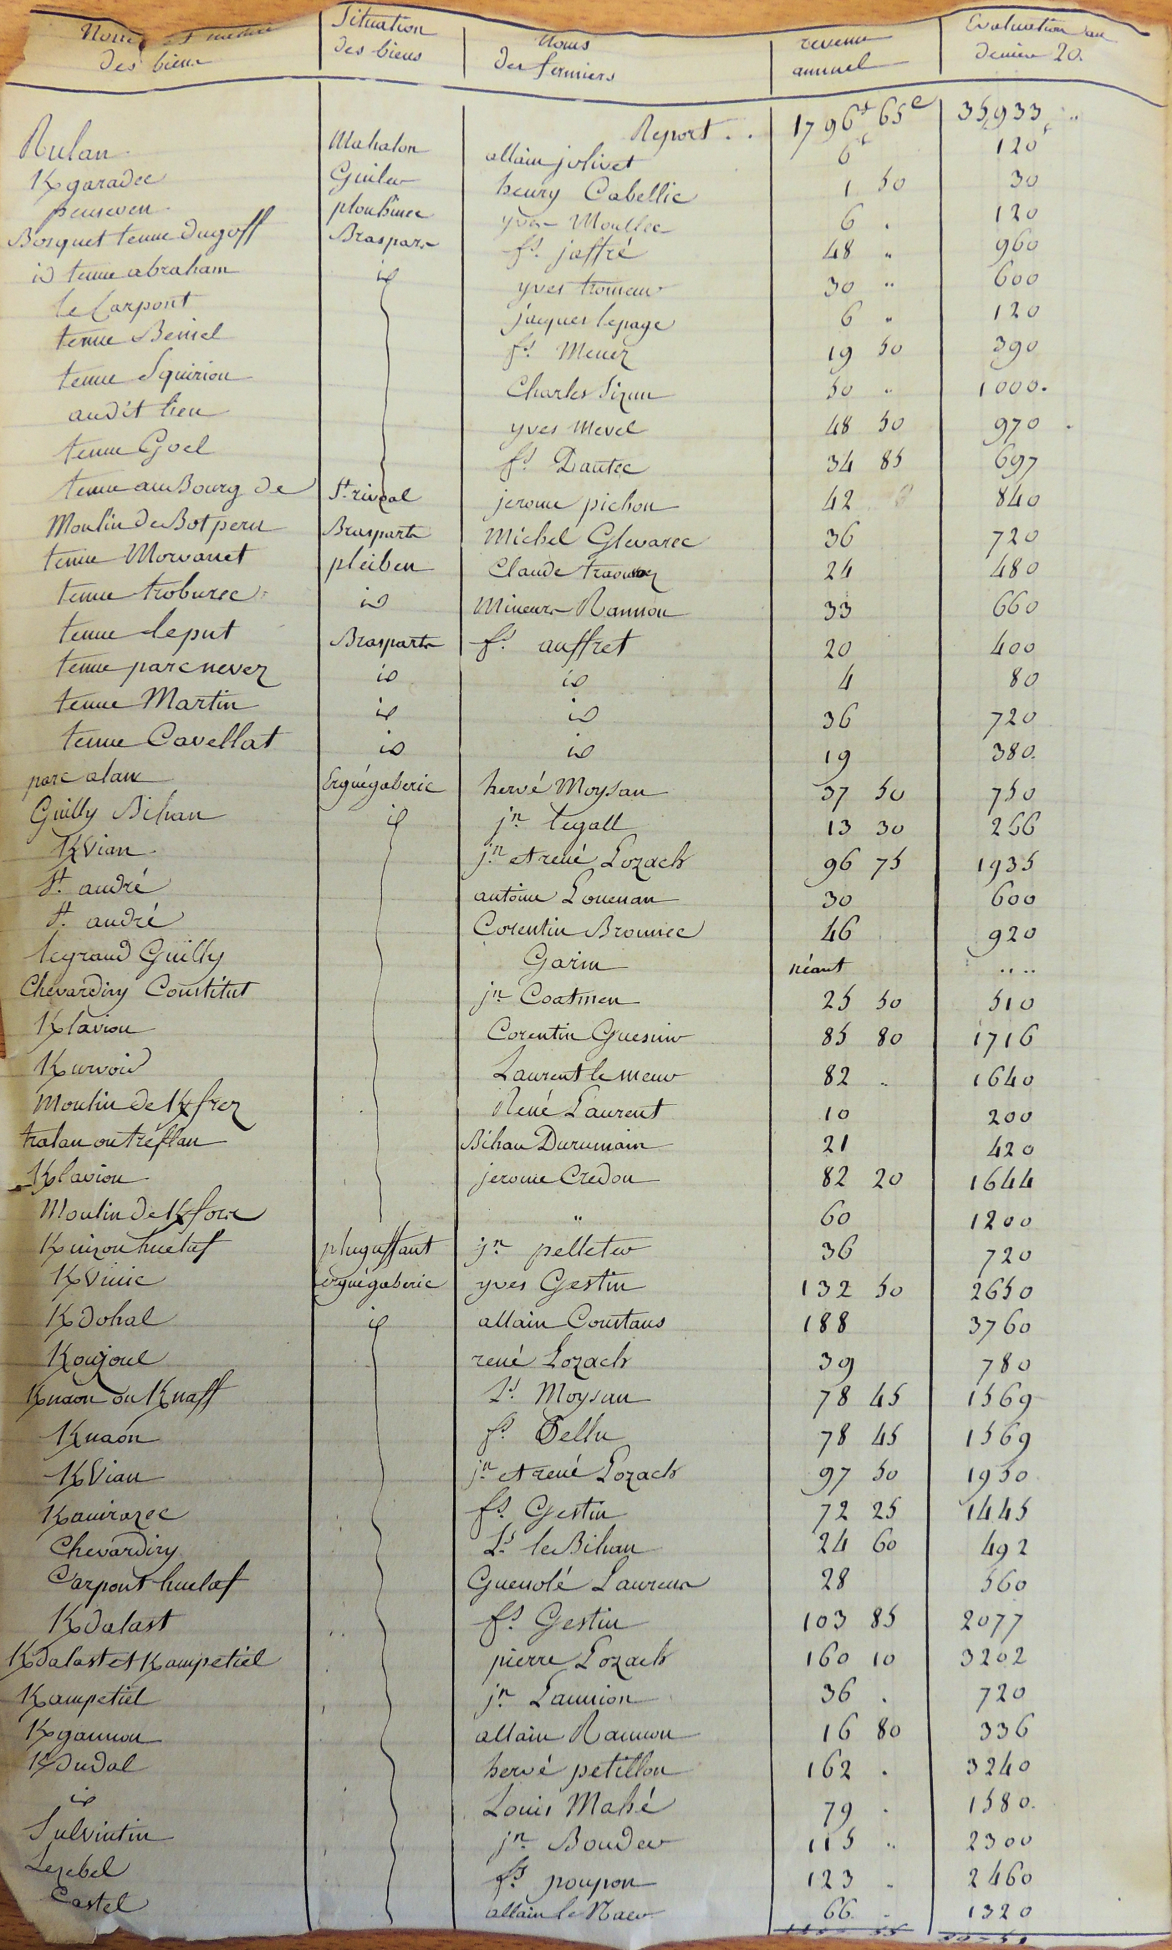 Noms et nature des biens | Situation des biens | Noms des fermiers | revenu annuel | Evaluation au denier 20.
Report . . 1796 65c 35,933 "
Rulan Mahalon allain jolivet 6 120
Kgaradec Guiler henry Cabellic 1 50 30
penseven plouhinec yves Moullec 6 . 120
Bosquet tenue dugoff Braspars fs jaffré 48 " 960
id tenue abraham id yves tromeur 30 " 600
le Carpont jacques lepage 6 " 120
tenue Beniel fs Menez 19 50 390
tenue Squirion Charles Sizun 50 " 1000.
audit lieu yves Mevel 48 50 970
tenue Goel fs Dantec 34 85 697
tenue au Bourg de St rivoal jerome pichon 42 840
Moulin de Botpern Brasparts Michel Glevarec 36 720
tenue Morvanet pleiben Claude 24 480
tenue troburec id Mineurs Rannou 33 660
tenue leput Brasparts fs auffret 20 400
tenue parc nevez id id 4 80
tenue Martin id id 36 720
tenue Cavellat id id 19 380.
parc alan Erguégaberic hervé Moysan 37 50 750
Guilly Bihan id jn legall 13 30 266
KVian jn et rené Lozach 96 75 1935
St andré antoine Louenan 30 600
St andré Corentin Brounec 46 920
legrand Guilly Garin néant ....
Chevardiry Constitut jn Coatmen 25 50 510
Klaviou Corentin Guesnin 85 80 1716
Kurvois Laurent le meur 82 .. 1640
Moulin de Kfrez René Laurent 10 200
tralan ou tréflan Bihan Durumain 21 420
Klaviou jerome Credou 82 20 1644
Moulin de Kfors " 60 1200
Knizou huelaf pluguffant jn pelleter 36 720
KVinic erguégaberic yves Gestin 132 50 2650
Kdohal id allain Constans 188 3760
Koujoul rené Lozach 39 780
Knaon ou Knaff Ls Moysan 78 45 1569
Knaon fs Gellu 78 45 1569
KVian jn et rené Lozach 97 50 1950
Kauirazec fs Gestin 72 25 1445
Chevardiry Ls le Bihan 24 60 492
Carpont huelaf Guenolé Laurent 28 560
Kdalast fs Gestin 103 85 2077
Kdalast et Kampetiel pierre Lozach 160 10 3202
Kampetiel jn Lannion 36 . 720
Kgannou allain Rannou 16 80 336
Kdudal hervé petillon 162 . 3240
id Louis Mahé 79 . 1580.
Sulvintin jn Bouder 115 .. 2300
Lezebel fs poupon 123 .. 2460
Castel allain le Naer 66 .. 1320